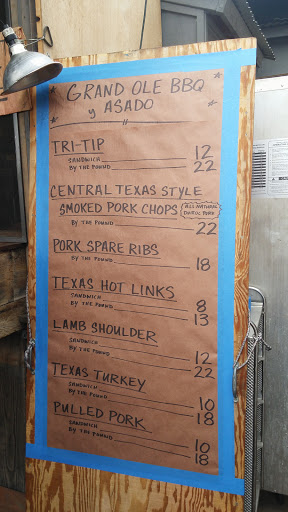 * GRAND OLE BBQ *
* y ASADO *
TRI-TIP
SANDWICH 12
BY THE POUND 22
CENTRAL TEXAS STYLE
SMOKED PORK CHOPS (ALL NATURAL DUROC PORK)
BY THE POUND 22
PORK SPARE RIBS
BY THE POUND 18
TEXAS HOT LINKS
SANDWICH 8
BY THE POUND 13
LAMB SHOULDER
SANDWICH 12
BY THE POUND 22
TEXAS TURKEY
SANDWICH 10
BY THE POUND 18
PULLED PORK
SANDWICH 10
BY THE POUND 18